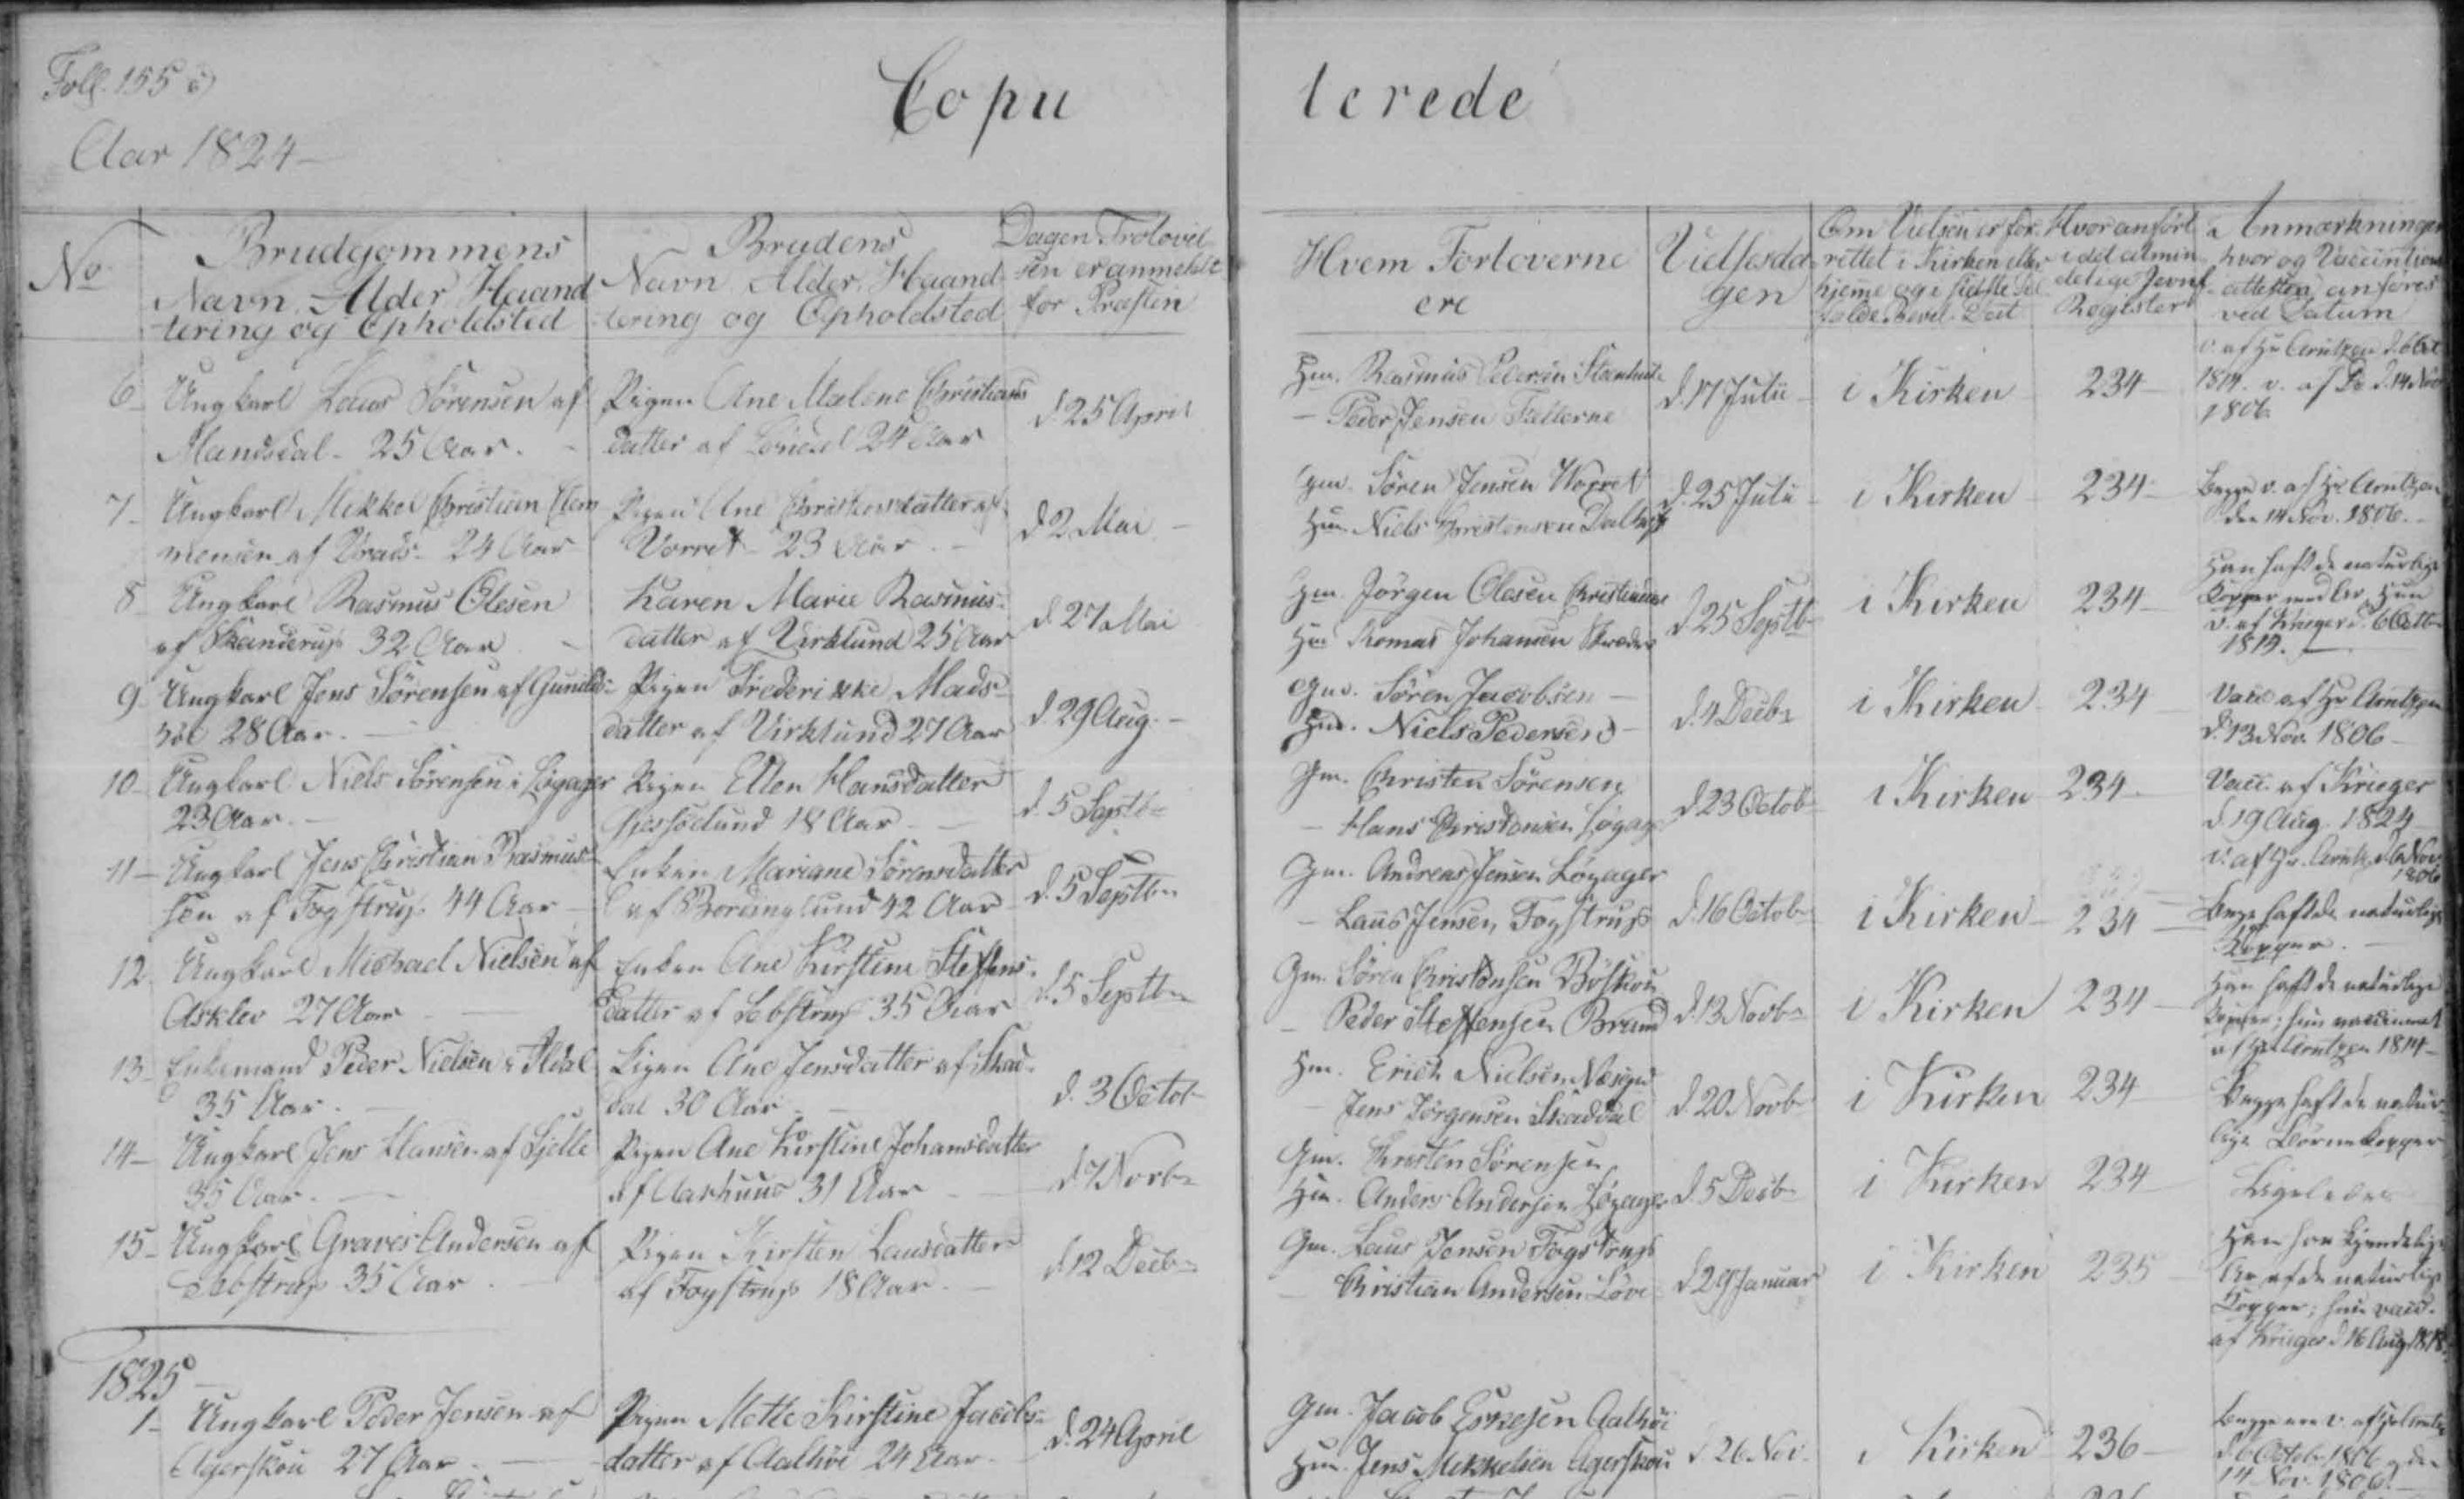 Foll. 155
Copu lerede
Aar 1824
No
Brudgommens
Navn, Alder, Haand
tering og Opholdsted
Brudens
Navn, Alder, Haand
tering og Opholdsted
Dagen Trolovel
sen er anmeldt
for Præsten
Hvem Forloverne
ere
Vielsesda
gen
Om Vielsen er for
rettet i Kirken eller
hjeme og i sidste Til
fælde Bevil. Dat
Hvor anført
i det almin
delige Jevnf
Register
Anmærkninger
hvor og Vaccintions
attesten anføres
ved Datum
6 Ungkarl Laus Sørensen af
25 Aar.
Pigen Ane Malene Christians
datter af 24 Aar
d. 25 April
Rasmus Pedersen
Peder Jensen
d. 17 Julii
i Kirken
234
1814. v. af Do d. 14 Nov
1806
7 Ungkarl Mikkel Christian Clem
mensen af Vrads 24 Aar
Pigen Ane Christensdatter af
Vorret 23 Aar
d 2 Mai
Gm. Søren Jensen Worret
Hm. Niels Christensen
d. 25 Julii
i Kirken
234
Begge v. af Hr Arntzen
den 14 Nov. 1806.
8 Ungkarl Rasmus Olesen
af Skanderup 32 Aar
Karen Marie Rasmus
datter af Virklund 25 Aar
d 27 Mai
Gm. Jørgen Olesen
Hm. Tomas Johansen
d 25 Septb
i Kirken
234
Han haft de naturlige
Kopper med Ar, Hun
v. af Krieger d. 6 Octb
1819.
9 Ungkarl Jens Sørensen af
28 Aar.
Pigen Frederikke Mads
datter af Virklund 27 Aar
d 29 Aug.
Gm. Søren Jacobsen
Hm. Niels Pedersen
d. 4 Decb
i Kirken
234
Vacc af Hr Arntzen
d. 13 Nov. 1806
10 Ungkarl Niels Sørensen i Løgager
23 Aar.
Pigen Ellen Hansdatter
18 Aar
d. 5 Septb
Gm. Christen Sørensen
Hans Christensen Løgag
d 23 Octob
i Kirken
234
Vacc. af Krieger
d 19 Aug. 1824
v. af Hr. Arntz. d. 6 Nov.
1806
11 Ungkarl Jens Christian Rasmus
sen af Fogstrup 44 Aar
Enken Mariane Sørensdatter
af Bordinglund 42 Aar
d. 5 Septbr
Gm. Andreas Jensen Løgager
Laus Jensen Fogstrup
d. 16 Octob
i Kirken
234
Begge haft de naturlige
Kopper.
12. Ungkarl Michael Nielsen af
Asklev 27 Aar
Enken Ane Kirstine Steffens
datter af Sebstrup 35 Aar
d. 5 Septbr
Gm. Søren Christensen Böskou
Peder Steffensen Brund
d. 13 Novb
i Kirken
234
Han haft de naturlige
Kopper; hun vaccineret
af Hr Arntzen 1814
13 Enkemand Peder Nielsen i
35 Aar.
Pigen Ane Jensdatter af Skad
dal 30 Aar
d. 3 Octob
Hm. Erich Nielsen
Jens Jørgensen Skaddal
d. 20 Novb
i Kirken
234
Begge haft de natur
lige Börnekopper
14 Ungkarl Jens Hansen af Gjelle
35 Aar.
Pigen Ane Kirstine Johansdatter
af Aarhuus 31 Aar
d. 7 Novb
Gm. Christen Sørensen
Hm. Anders Andersen Løgager
d. 5 Decb
i Kirken
234
Ligeledes
15 Ungkarl Graves Andersen af
Sebstrup 35 Aar
Pigen Kirsten Lausdatter
af Fogstrup 18 Aar.
d. 12 Decb
Gm. Laus Jensen Fogstrup
Christian Andersen Löve
d 29 Januar
i Kirken
235
Han har kjendelige
Ar af de naturlige
Kopper; hun vacc.
af Krieger d 16 Aug 1818.
1825
1 Ungkarl Peder Jensen af
Agerskou 27 Aar
Pigen Mette Kirstine Jacobs
datter af Aalhöi 24 Aar
d. 24 April
Gm. Jacob Eskesen Aalhöi
Hm. Jens Mikkelsen Agerskou
d 26 Nov.
i Kirken
236
Begge ere v. af
d 6 Octob 1806 og den
14 Nov. 1806